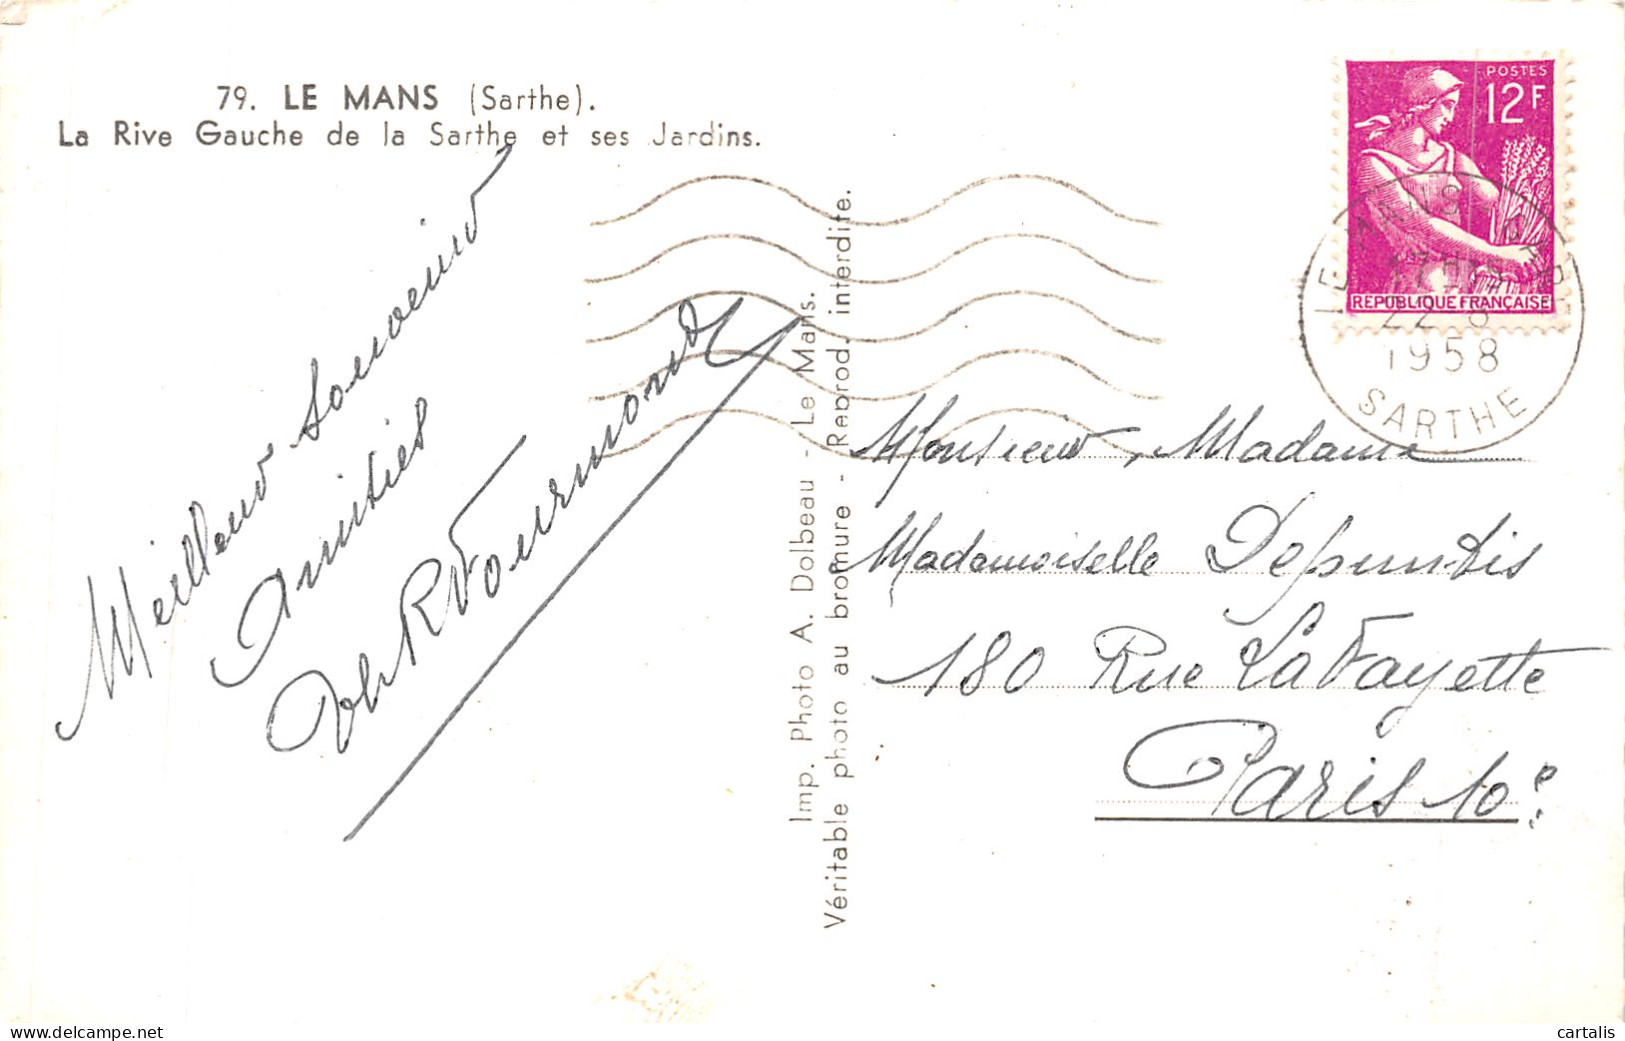 79. LE MANS (Sarthe).
La Rive Gauche de la Sarthe et ses Jardins.
Meilleur Souvenir
Amitiés
R Fourmond
Imp. Photo A. Dolbeau - Le Mans.
Véritable photo au bromure - Reprod. interdite.
POSTES
12F
REPUBLIQUE FRANÇAISE
LE MANS GARE
17H15
22-8
1958
SARTHE
Monsieur, Madame
Mademoiselle Depuntis
180 Rue LaFayette
Paris 10e
cartalis
www.delcampe.net